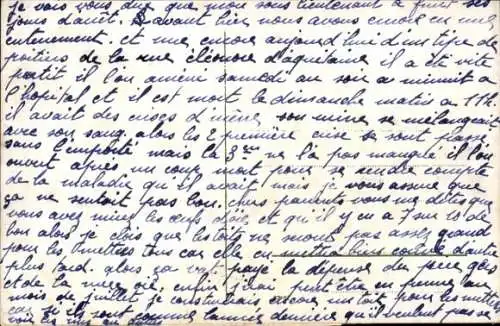 je vous vous dire que mon sous lieutenant a finit ses
jours d'arrêt. avant hier nous avons encore eu un
enterement. et un encore aujourd'hui d'un tipe de
poitiers de la rue éléonore d'aquetaine il a été vite
partit il l'on amené samedi au soir a minuit a
l'hopital et il est mort le dimanche matin a 11h
il avait des crises d' son se mélangeait
avec son sang. alors les 2 première crise se sont passé
sans l'emporté mais la 3ème ne l'a pas manqué il l'on
ouvert après un coup mort pour se rendre compte
de la maladie qu'il avait mais je vous assure que
ça ne sentait pas bon. chers parents vous me dites que
vous avez mis les œufs d'oie et qu'il y en a 7 sur 10 de
bon alors je crois que les toits ne seront pas assez grand
pour les mettres tous car elle en mettra bien couvé d'autre
plus tard. alors ça va payé la dépense du
et de la mère oie, enfin j'irai peut etre en perme au
mois de juillet je construirais encore un toit pour les mettre
car si ils sont comme l'année dernière qu'il veulent pas se
voir les uns au autres